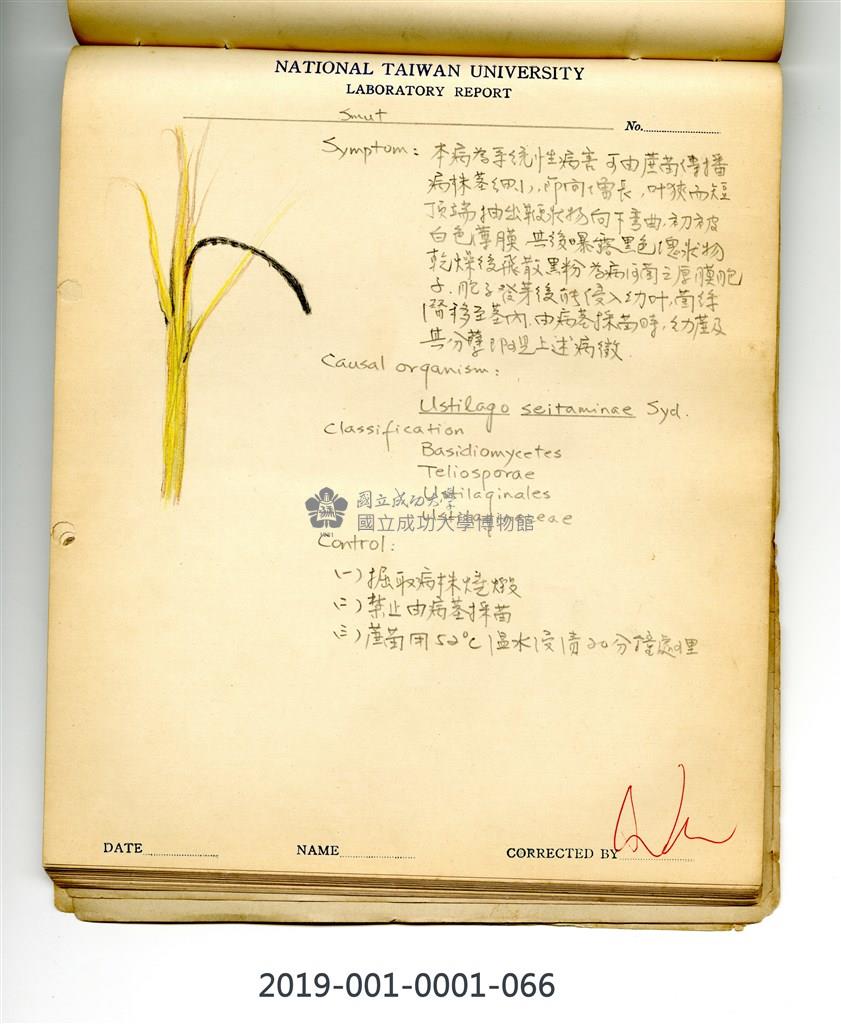 NATIONAL TAIWAN UNIVERSITY
LABORATORY REPORT
Smut
No.
Symptom: 本病為系統性病害 可由蔗苗傳播
病株莖細小, 節間僭長, 叶狹而短
頂端抽出鞭狀物向下弯曲, 初被
白色薄膜 其後曝露黑色 狀物
乾燥後飛散黑粉 為病 菌之厚膜胞
子. 胞子發芽後能侵入幼叶, 菌絲
移至莖內. 由病莖採苗時, 幼蔗及
其分孽即呈上述病徵.
Causal organism:
Ustilago seitaminae Syd.
Classification
Basidiomycetes
Teliosporae
Ustilaginales
國立成功大學
國立成功大學博物館
Control:
(一) 掘取病株燒燬
(二) 禁止由病莖採苗
(三) 蔗苗用52°C 温水浸漬20分鐘處理
DATE
NAME
CORRECTED BY
2019-001-0001-066